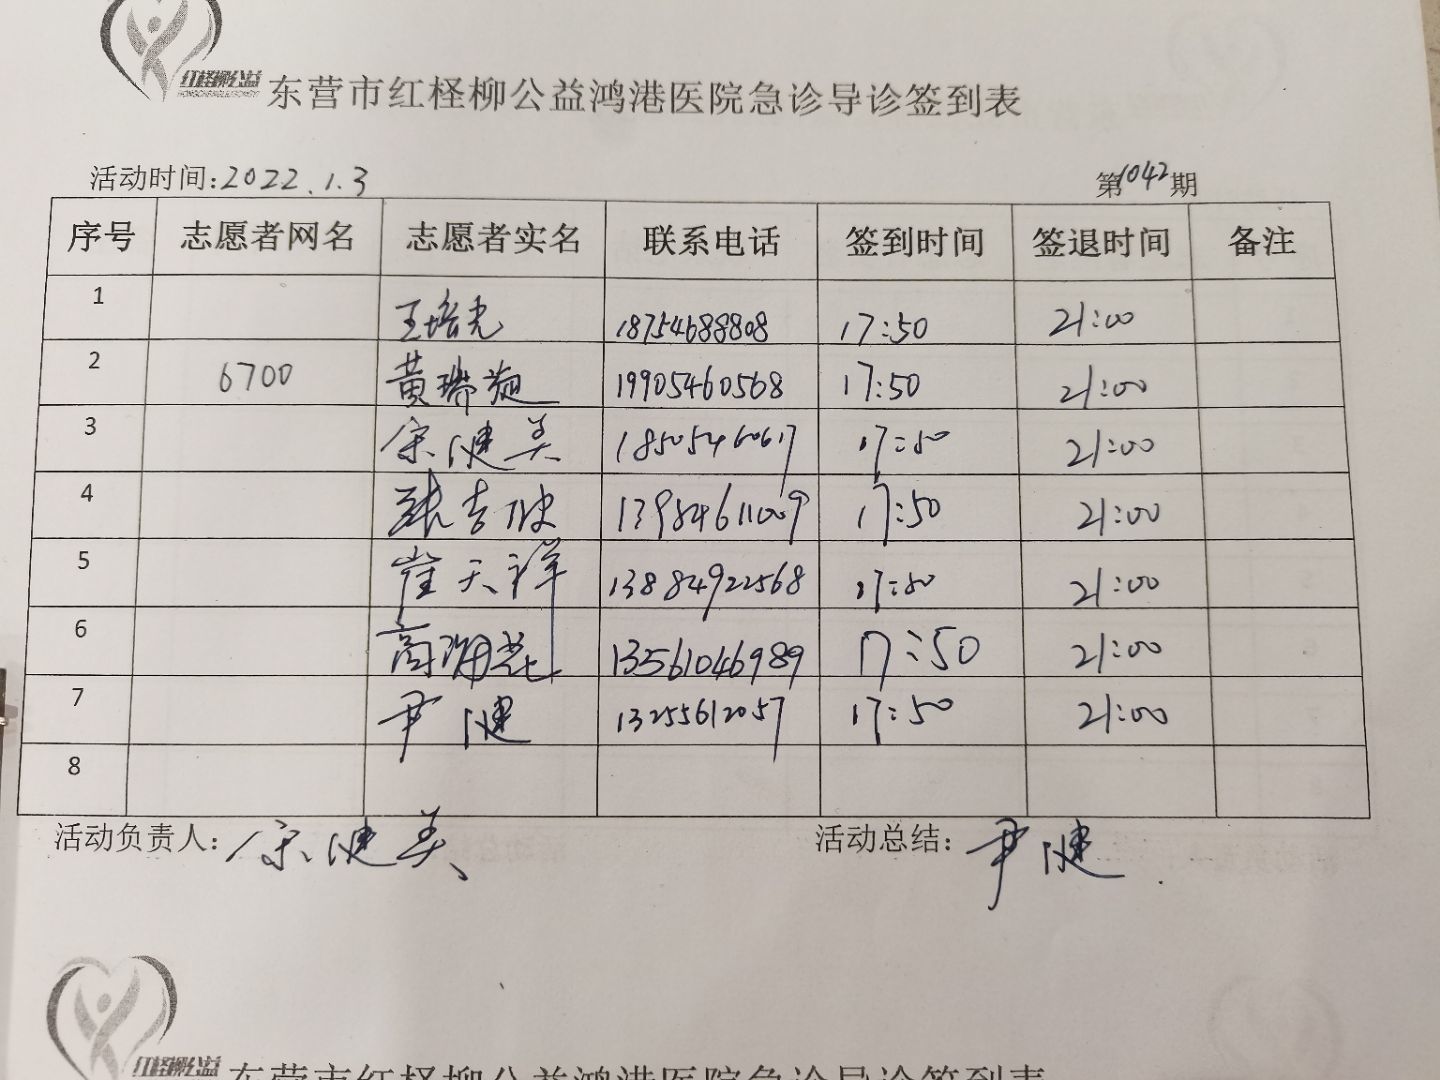 红柽柳公益
东营市红柽柳公益鸿港医院急诊导诊签到表
活动时间:2022.1.3 第1042期
序号 志愿者网名 志愿者实名 联系电话 签到时间 签退时间 备注
1 王培光 18754688808 17:50 21:00
2 6700 黄瑞 19905460568 17:50 21:00
3 宋健美 18505460617 17:50 21:00
4 张吉 13984611009 17:50 21:00
5 崔天祥 13884922568 17:50 21:00
6 商 13561046989 17:50 21:00
7 尹健 13255612057 17:50 21:00
8
活动负责人:宋健美 活动总结:尹健.
红柽柳公益
东营市红柽柳公益鸿港医院急诊导诊签到表